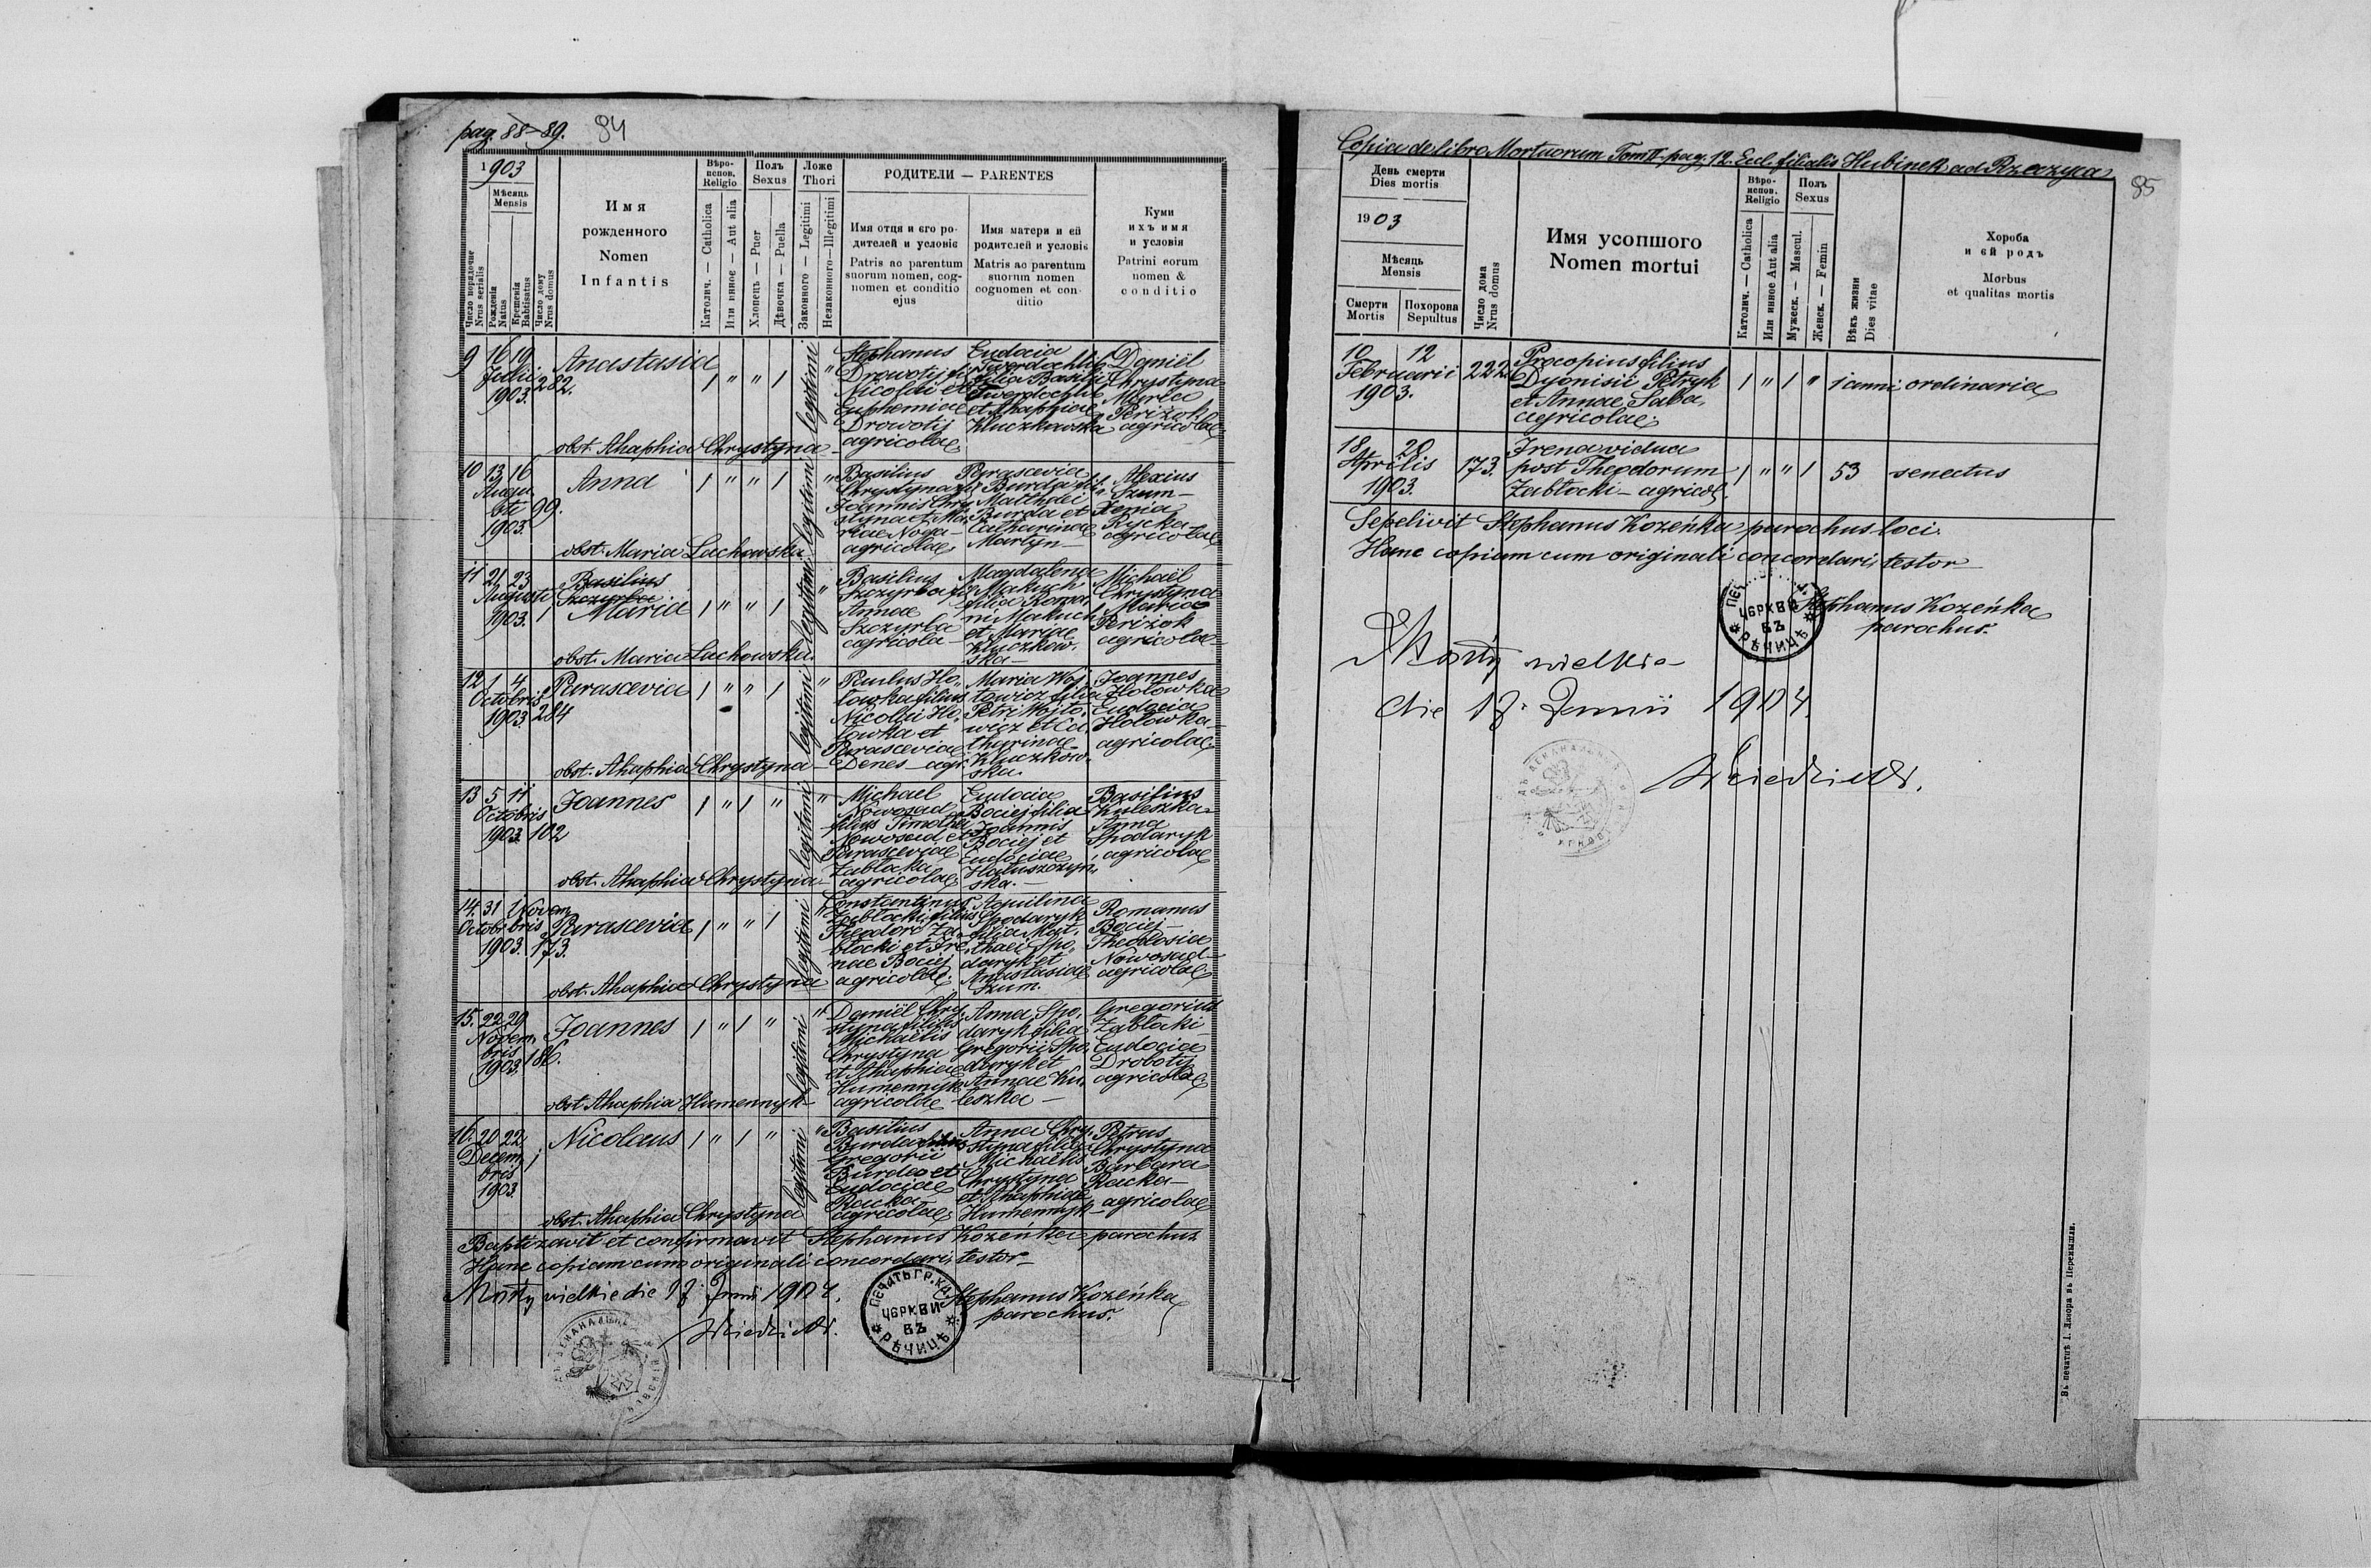 pag. 88-89. 84
1903
Мѣсяць
Mensis
Число порядочне
Nrus serialis
Рожденія
Natus
Крещенія
Babtisatus
Число дому
Nrus domus
Имя
рожденного
Nomen
Infantis
Вѣро-
испов.
Religio
Католич. — Catholica
Или инное — Aut alia
Полъ
Sexus
Хлопець — Puer
Дѣвочка — Puella
Ложе
Thori
Законного — Legitimi
Незаконного — Illegitimi
РОДИТЕЛИ — PARENTES
Имя отця и его ро-
дителей и условіє
Patris ac parentum
suorum nomen, cog-
nomen et conditio
ejus
Имя матери и ей
родителей и условіє
Matris ac parentum
suorum nomen
cognomen et con-
ditio
Куми
ихъ имя
и условія
Patrini eorum
nomen &
conditio
9 16 19
Julii
1903. 282.
Anastasia
1 " " 1
legitimi
Stephanus
Drowotij
Nicolai et
Euphemiae
Drowotij
agricolae
Eudocia
filia Basilii
et Ahaphiae
Kluczkowska
Daniël
Chrystyna
Maria
Perizok
agricolae
obst. Ahaphia Chrystyna
10 13 16
Augu
sti 99.
1903.
Anna
1 " " 1
legitimi
Basilius
Chrystyna
Joannis Chry
styna et Ma
riae Noga
agricolae
Parascevia
Burda fil.
Matthaei
Burda et
Catharinae
Martyn
Alexius
Szum
Xenia
Rycka
agricolae
obst. Maria Lachowska
11 21 23
Augusti
1903. 1
Basilius
Szczyrba
Maria
1 " " 1
legitimi
Basilius
Szczyrba
Annae
Szczyrba
agricola
Magdalena
Makuch
filia Roma
ni Makuch
et Mariae
Kluczkow
ska
Michaël
Chrystyna
Maria
Perizok
agricolae
obst. Maria Lachowska.
12 1 4
Octobris
1903. 284
Parascevia
1 " " 1
legitimi
Paulus Ho
lowka filius
Nicolai Ho
lowka et
Parasceviae
Denes agr.
Maria Woj
towicz filia
Petri Wojto
wicz et Ca
tharinae
Kluczkow
ska.
Joannes
Holowka
Eudocia
Holowka
agricolae
obst. Ahaphia Chrystyna
13 5 11
Octobris
1903. 102
Joannes
1 " 1 "
legitimi
Michael
Nowosad
filius Timothei
Nowosad et
Parasceviae
Zabłocka
agricolae
Eudocia
Bociej filia
Joannis
Bociej et
Eudociae
Hałuszczyń
ska.
Basilius
Kuleszka
Anna
Spodaryk
agricolae
obst. Ahaphia Chrystyna
14. 31 Novem
Octobr. bris
1903. 173.
Parascevia
1 " " 1
legitimi
Constantinus
Zabłocki filius
Theodori Za
błocki et Ire
nae Bociej
agricolae.
Aquilina
Spodaryk
filia Mat
thaei Spo
daryk et
Anastasiae
Szum.
Romanus
Bociej
Theodosia
Nowosad
agricolae
obst. Ahaphia Chrystyna
15. 22 29
Novem
bris
1903. 186.
Joannes
1 " 1 "
legitimi
Daniël Chry
styna filius
Michaëlis
Chrystyna
et Ahaphiae
Humennyk
agricolae
Anna Spo
daryk filia
Gregorii Spo
daryk et
Annae Ku
leszka
Gregorius
Zabłocki
Eudocia
Drobotij
agricolae
obst. Ahaphia Humennyk
16. 20 22
Decem
bris
1903.
Nicolaus
1 " 1 "
legitimi
Basilius
Burda filius
Gregorii
Burda et
Eudociae
Racka
agricolae
Anna Chry
styna filia
Michaëlis
Chrystyna
et Ahaphiae
Humennyk
Petrus
Chrystyna
Barbara
Racka
agricolae
obst. Ahaphia Chrystyna
Baptizavit et confirmavit Stephanus Kozeńka parochus
Hanc copiam cum originali concordari, testor
Mosty wielkie die 17. Junii 1904.
Stephanus Kozeńka
parochus.
ПЕЧАТЬ ГР. КАТ.
ЦЕРКВИ
ВЪ
РѢЧИЦѢ
Copia de libro Mortuorum Tom II. pag. 12. Eccl. filialis Hubinek ad Rzeczyca
85
День смерти
Dies mortis
1903
Мѣсяць
Mensis
Смерти
Mortis
Похорона
Sepultus
Число дома
Nrus domus
Имя усопшого
Nomen mortui
Вѣро-
испов.
Religio
Католич. — Catholica
Или инное Aut alia
Полъ
Sexus
Мужеск. — Mascul.
Женск. — Femin
Вѣкъ жизни
Dies vitae
Хороба
и ей родъ
Morbus
et qualitas mortis
10 12
Februarii
1903.
222.
Procopius filius
Dyonisii Petryk
et Annae Saba,
agricolae.
1 " 1 "
1 anni
ordinaria
18 20
Aprilis
1903.
173.
Irena vidua
post Theodorum
Zabłocki - agricol.
1 " " 1
53
senectus
Sepelivit Stephanus Kozeńka parochus loci.
Hanc copiam cum originali concordari, testor
Stephanus Kozeńka
parochus.
ЦЕРКВИ
ВЪ
РѢЧИЦѢ
Mosty wielkie
die 17. Junii 1904.
Въ печатнѣ І. Лазора въ Перемышли.